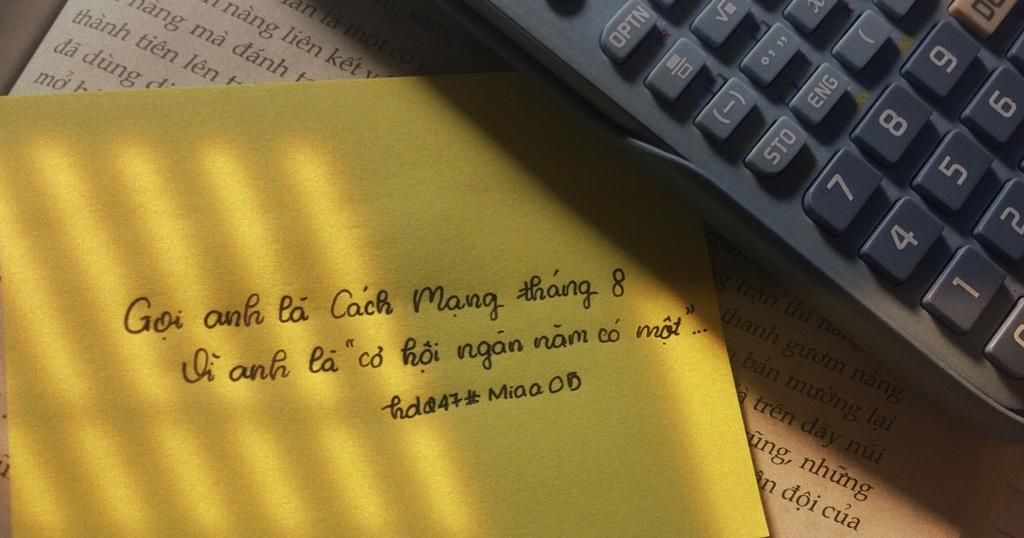 nàng mà đánh
nàng liên kết
là một cô
thành tiên lên
đã dùng
mở
OPTN
(
9
6
(-)
ENG
8
5
2
STO
7
4
1
Gọi anh là Cách Mạng tháng 8
Vì anh là "cơ hội ngàn năm có một"...
hdq47# Miaa OD
trận thì
thanh gươm nàng
bản mường lại
trên dãy núi
những
đội của